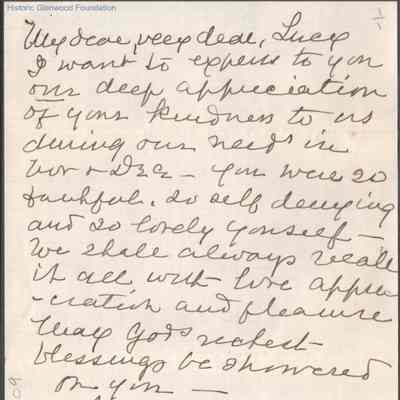 Historic Glenwood Foundation
My dear, very dear, Lucy
I want to express to you
our deep appreciation
of your kindness to us
during our needs in
Nov & Dec — you were so
faithful, so self denying
and so lovely yourself —
We shall always recall
it all, with love appre
-ciation and pleasure
May Gods richest
blessings be showered
on you —